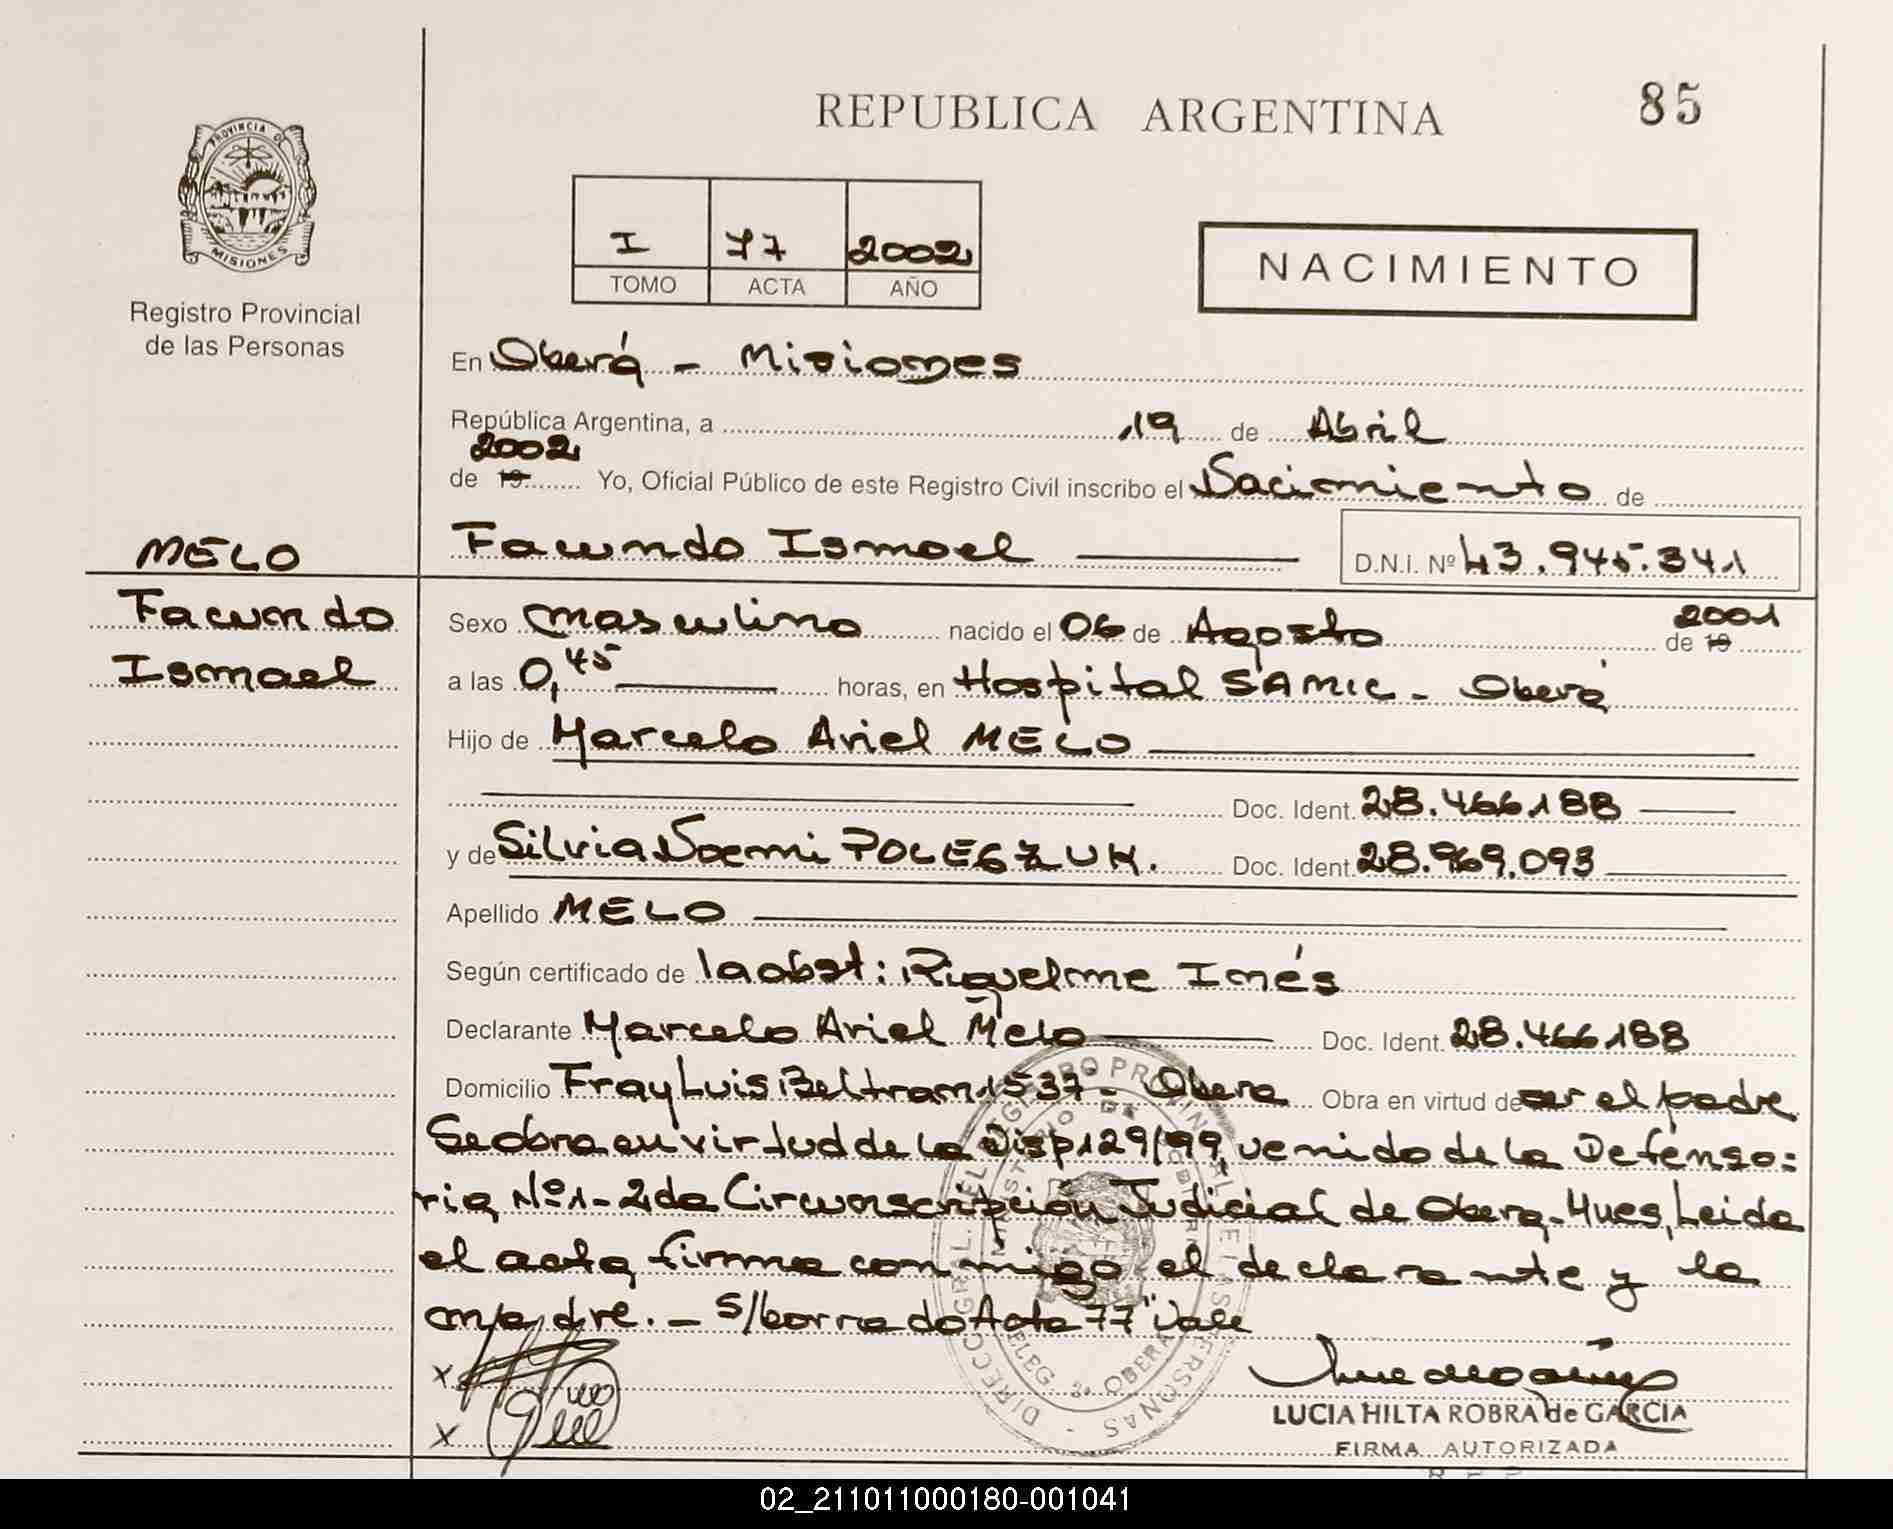 REPUBLICA ARGENTINA
85
PROVINCIA DE
MISIONES
Registro Provincial
de las Personas
I 77 2002
TOMO ACTA AÑO
NACIMIENTO
En Oberá - Misiones
República Argentina, a 19 de Abril
2002
de 19 Yo, Oficial Público de este Registro Civil inscribo el Nacimiento de
MELO
Facundo Ismael D.N.I. Nº 43.945.341
Facundo
Ismael
Sexo masculino nacido el 06 de Agosto de 19 2001
a las 0,45 horas, en Hospital SAMIC - Oberá
Hijo de Marcelo Ariel MELO
Doc. Ident. 28.466.188
y de Silvia Noemi POLEGZUK. Doc. Ident. 28.969.093
Apellido MELO
Según certificado de la obst: Riquelme Inés
Declarante Marcelo Ariel Melo Doc. Ident. 28.466.188
Domicilio Fray Luis Beltran 1537 - Obera Obra en virtud de ser el padre
Se obra en virtud de la Disp 129/99, venido de la Defenso=
ria Nº 1 - 2da Circunscripción Judicial de Obera - Mnes, Leida
el acta, firma conmigo el declarante y la
madre. - S/borrado Acta 77" Vale
X
X
LUCIA HILTA ROBRA de GARCIA
FIRMA AUTORIZADA
02_211011000180-001041